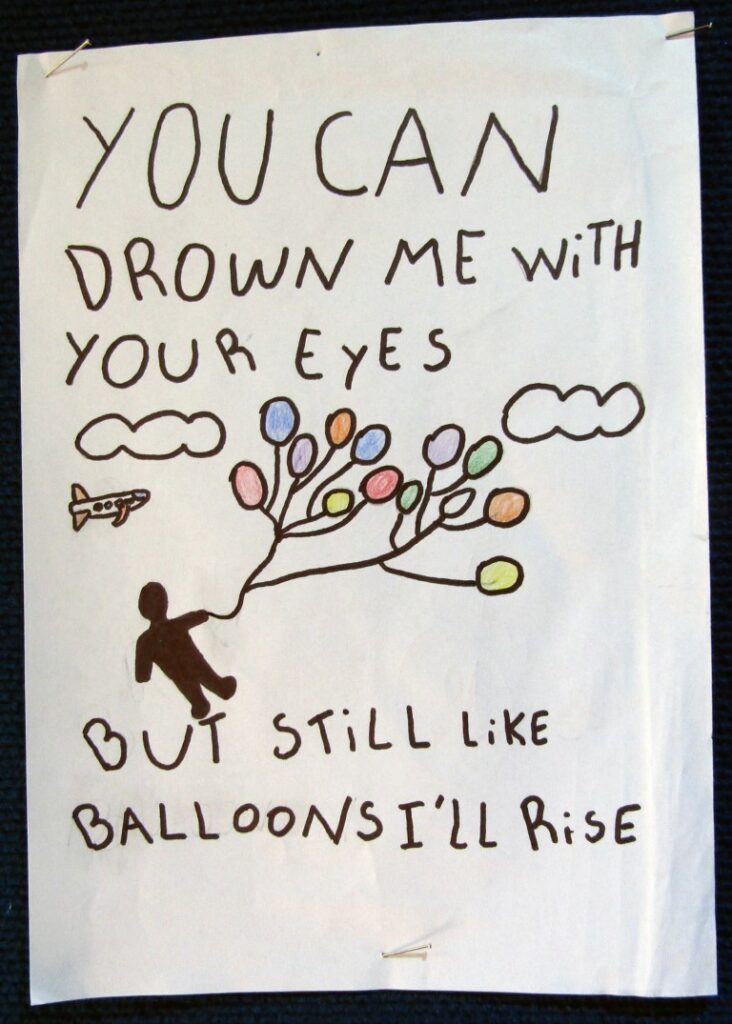 YOU CAN
DROWN ME WiTH
YOUR EyES
BUT STiLL LiKE
BALLOONS I'LL RiSE